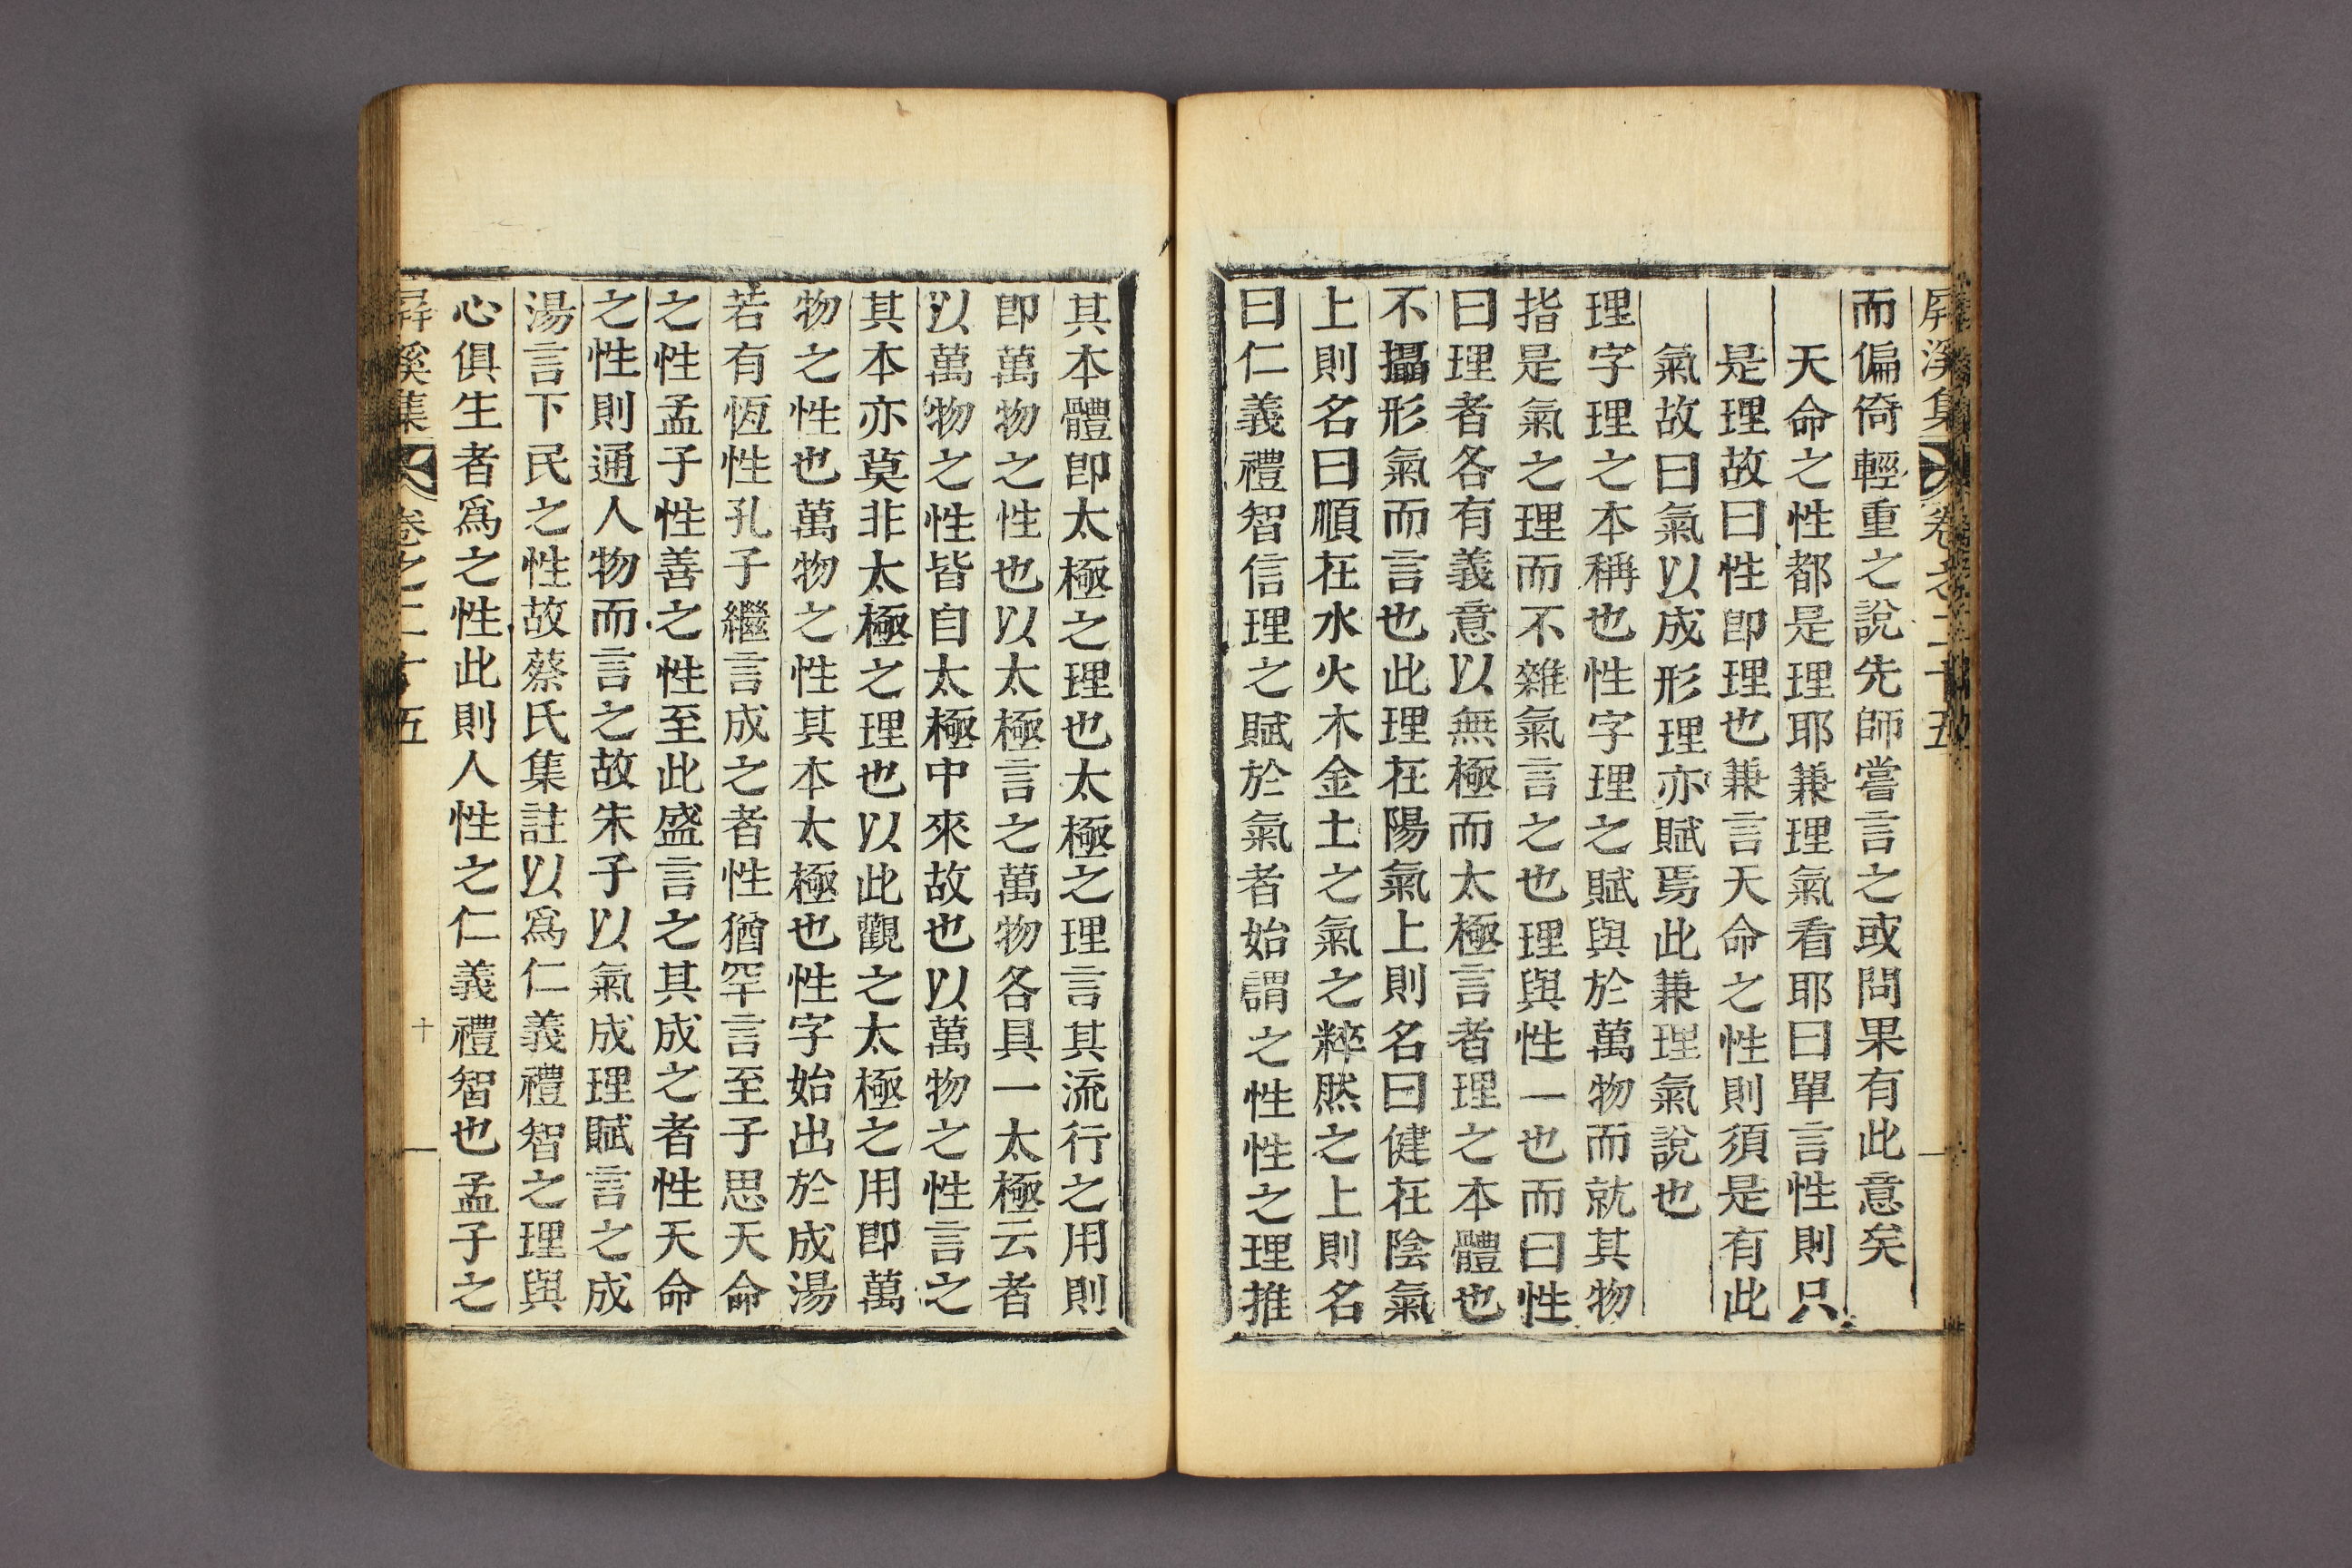 屛溪集 卷之二十五
而偏倚輕重之說先師嘗言之或問果有此意矣
天命之性都是理耶兼理氣看耶曰單言性則只
是理故曰性卽理也兼言天命之性則須是有此
氣故曰氣以成形理亦賦焉此兼理氣說也
理字理之本稱也性字理之賦與於萬物而就其物
指是氣之理而不雜氣言之也理與性一也而曰性
曰理者各有義意以無極而太極言者理之本體也
不攝形氣而言也此理在陽氣上則名曰健在陰氣
上則名曰順在水火木金土之氣之粹然之上則名
曰仁義禮智信理之賦於氣者始謂之性性之理推
其本體卽太極之理也太極之理言其流行之用則
卽萬物之性也以太極言之萬物各具一太極云者
以萬物之性皆自太極中來故也以萬物之性言之
其本亦莫非太極之理也以此觀之太極之用卽萬
物之性也萬物之性其本太極也性字始出於成湯
若有恆性孔子繼言成之者性猶罕言至子思天命
之性孟子性善之性至此盛言之其成之者性天命
之性則通人物而言之故朱子以氣成理賦言之成
湯言下民之性故蔡氏集註以爲仁義禮智之理與
心俱生者爲之性此則人性之仁義禮智也孟子之
屛溪集 卷之二十五 十一